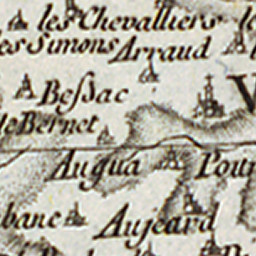 les Chevalliers
es Simons
Arraud
Beſsac
le Bernet
Auguá
Pour
banc
Aujeard